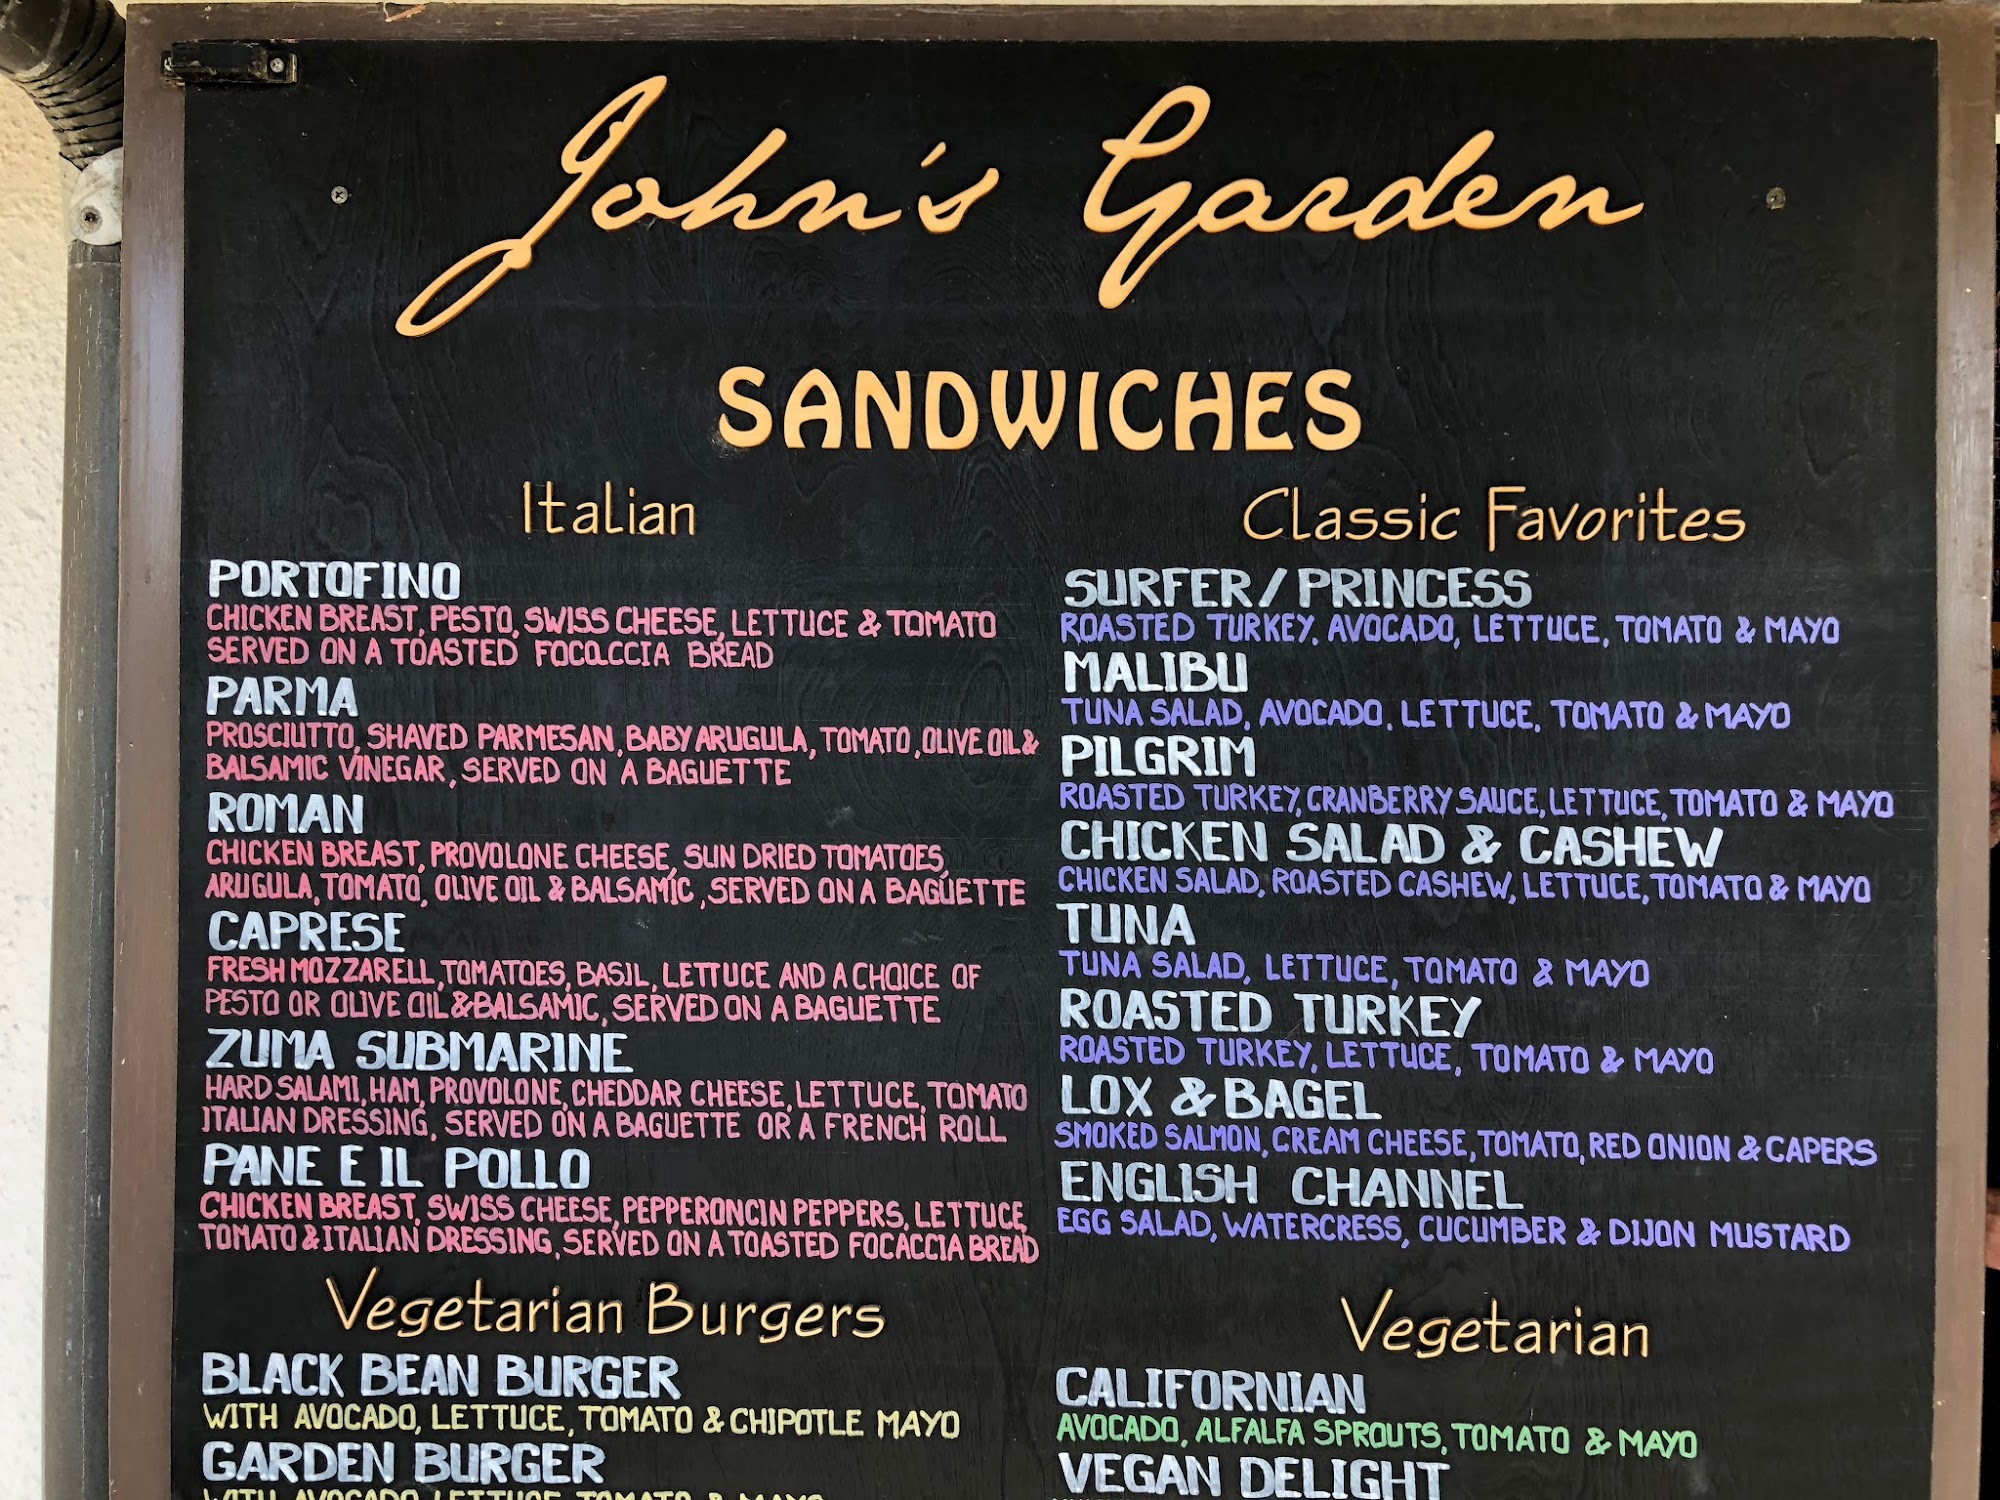 John's Garden
SANDWICHES
Italian
PORTOFINO
CHICKEN BREAST, PESTO, SWISS CHEESE, LETTUCE & TOMATO
SERVED ON A TOASTED FOCACCIA BREAD
PARMA
PROSCIUTTO, SHAVED PARMESAN, BABY ARUGULA, TOMATO, OLIVE OIL &
BALSAMIC VINEGAR, SERVED ON A BAGUETTE
ROMAN
CHICKEN BREAST, PROVOLONE CHEESE, SUN DRIED TOMATOES,
ARUGULA, TOMATO, OLIVE OIL & BALSAMIC, SERVED ON A BAGUETTE
CAPRESE
FRESH MOZZARELL, TOMATOES, BASIL, LETTUCE AND A CHOICE OF
PESTO OR OLIVE OIL & BALSAMIC, SERVED ON A BAGUETTE
ZUMA SUBMARINE
HARD SALAMI, HAM, PROVOLONE, CHEDDAR CHEESE, LETTUCE, TOMATO
ITALIAN DRESSING, SERVED ON A BAGUETTE OR A FRENCH ROLL
PANE E IL POLLO
CHICKEN BREAST, SWISS CHEESE, PEPPERONCIN PEPPERS, LETTUCE,
TOMATO & ITALIAN DRESSING, SERVED ON A TOASTED FOCACCIA BREAD
Vegetarian Burgers
BLACK BEAN BURGER
WITH AVOCADO, LETTUCE, TOMATO & CHIPOTLE MAYO
GARDEN BURGER
WITH AVOCADO LETTUCE TOMATO & MAYO
Classic Favorites
SURFER/PRINCESS
ROASTED TURKEY, AVOCADO, LETTUCE, TOMATO & MAYO
MALIBU
TUNA SALAD, AVOCADO, LETTUCE, TOMATO & MAYO
PILGRIM
ROASTED TURKEY, CRANBERRY SAUCE, LETTUCE, TOMATO & MAYO
CHICKEN SALAD & CASHEW
CHICKEN SALAD, ROASTED CASHEW, LETTUCE, TOMATO & MAYO
TUNA
TUNA SALAD, LETTUCE, TOMATO & MAYO
ROASTED TURKEY
ROASTED TURKEY, LETTUCE, TOMATO & MAYO
LOX & BAGEL
SMOKED SALMON, CREAM CHEESE, TOMATO, RED ONION & CAPERS
ENGLISH CHANNEL
EGG SALAD, WATERCRESS, CUCUMBER & DIJON MUSTARD
Vegetarian
CALIFORNIAN
AVOCADO, ALFALFA SPROUTS, TOMATO & MAYO
VEGAN DELIGHT